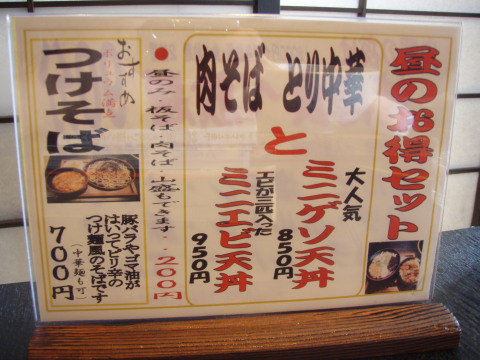 昼のお得セット
とり中華
肉そば
と
大人気
ミニゲソ天丼
850円
エビが三匹入った
ミニエビ天丼
950円
●昼のみ・板そば・肉そば・大盛もできます・200円
おすすめ
ボリューム満点
つけそば
豚バラやゴマ油が
はいってピリ辛の
つけ麺風のそばです
(中華麺も可)
700円